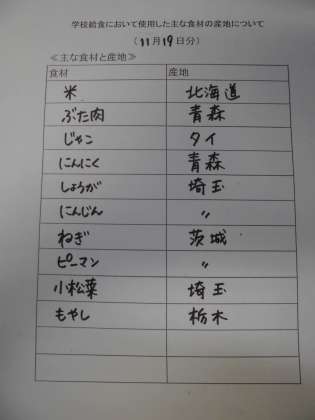 学校給食において使用した主な食材の産地について
(11月19日分)
≪主な食材と産地≫
食材 産地
米 北海道
ぶた肉 青森
じゃこ タイ
にんにく 青森
しょうが 埼玉
にんじん 〃
ねぎ 茨城
ピーマン 〃
小松菜 埼玉
もやし 栃木